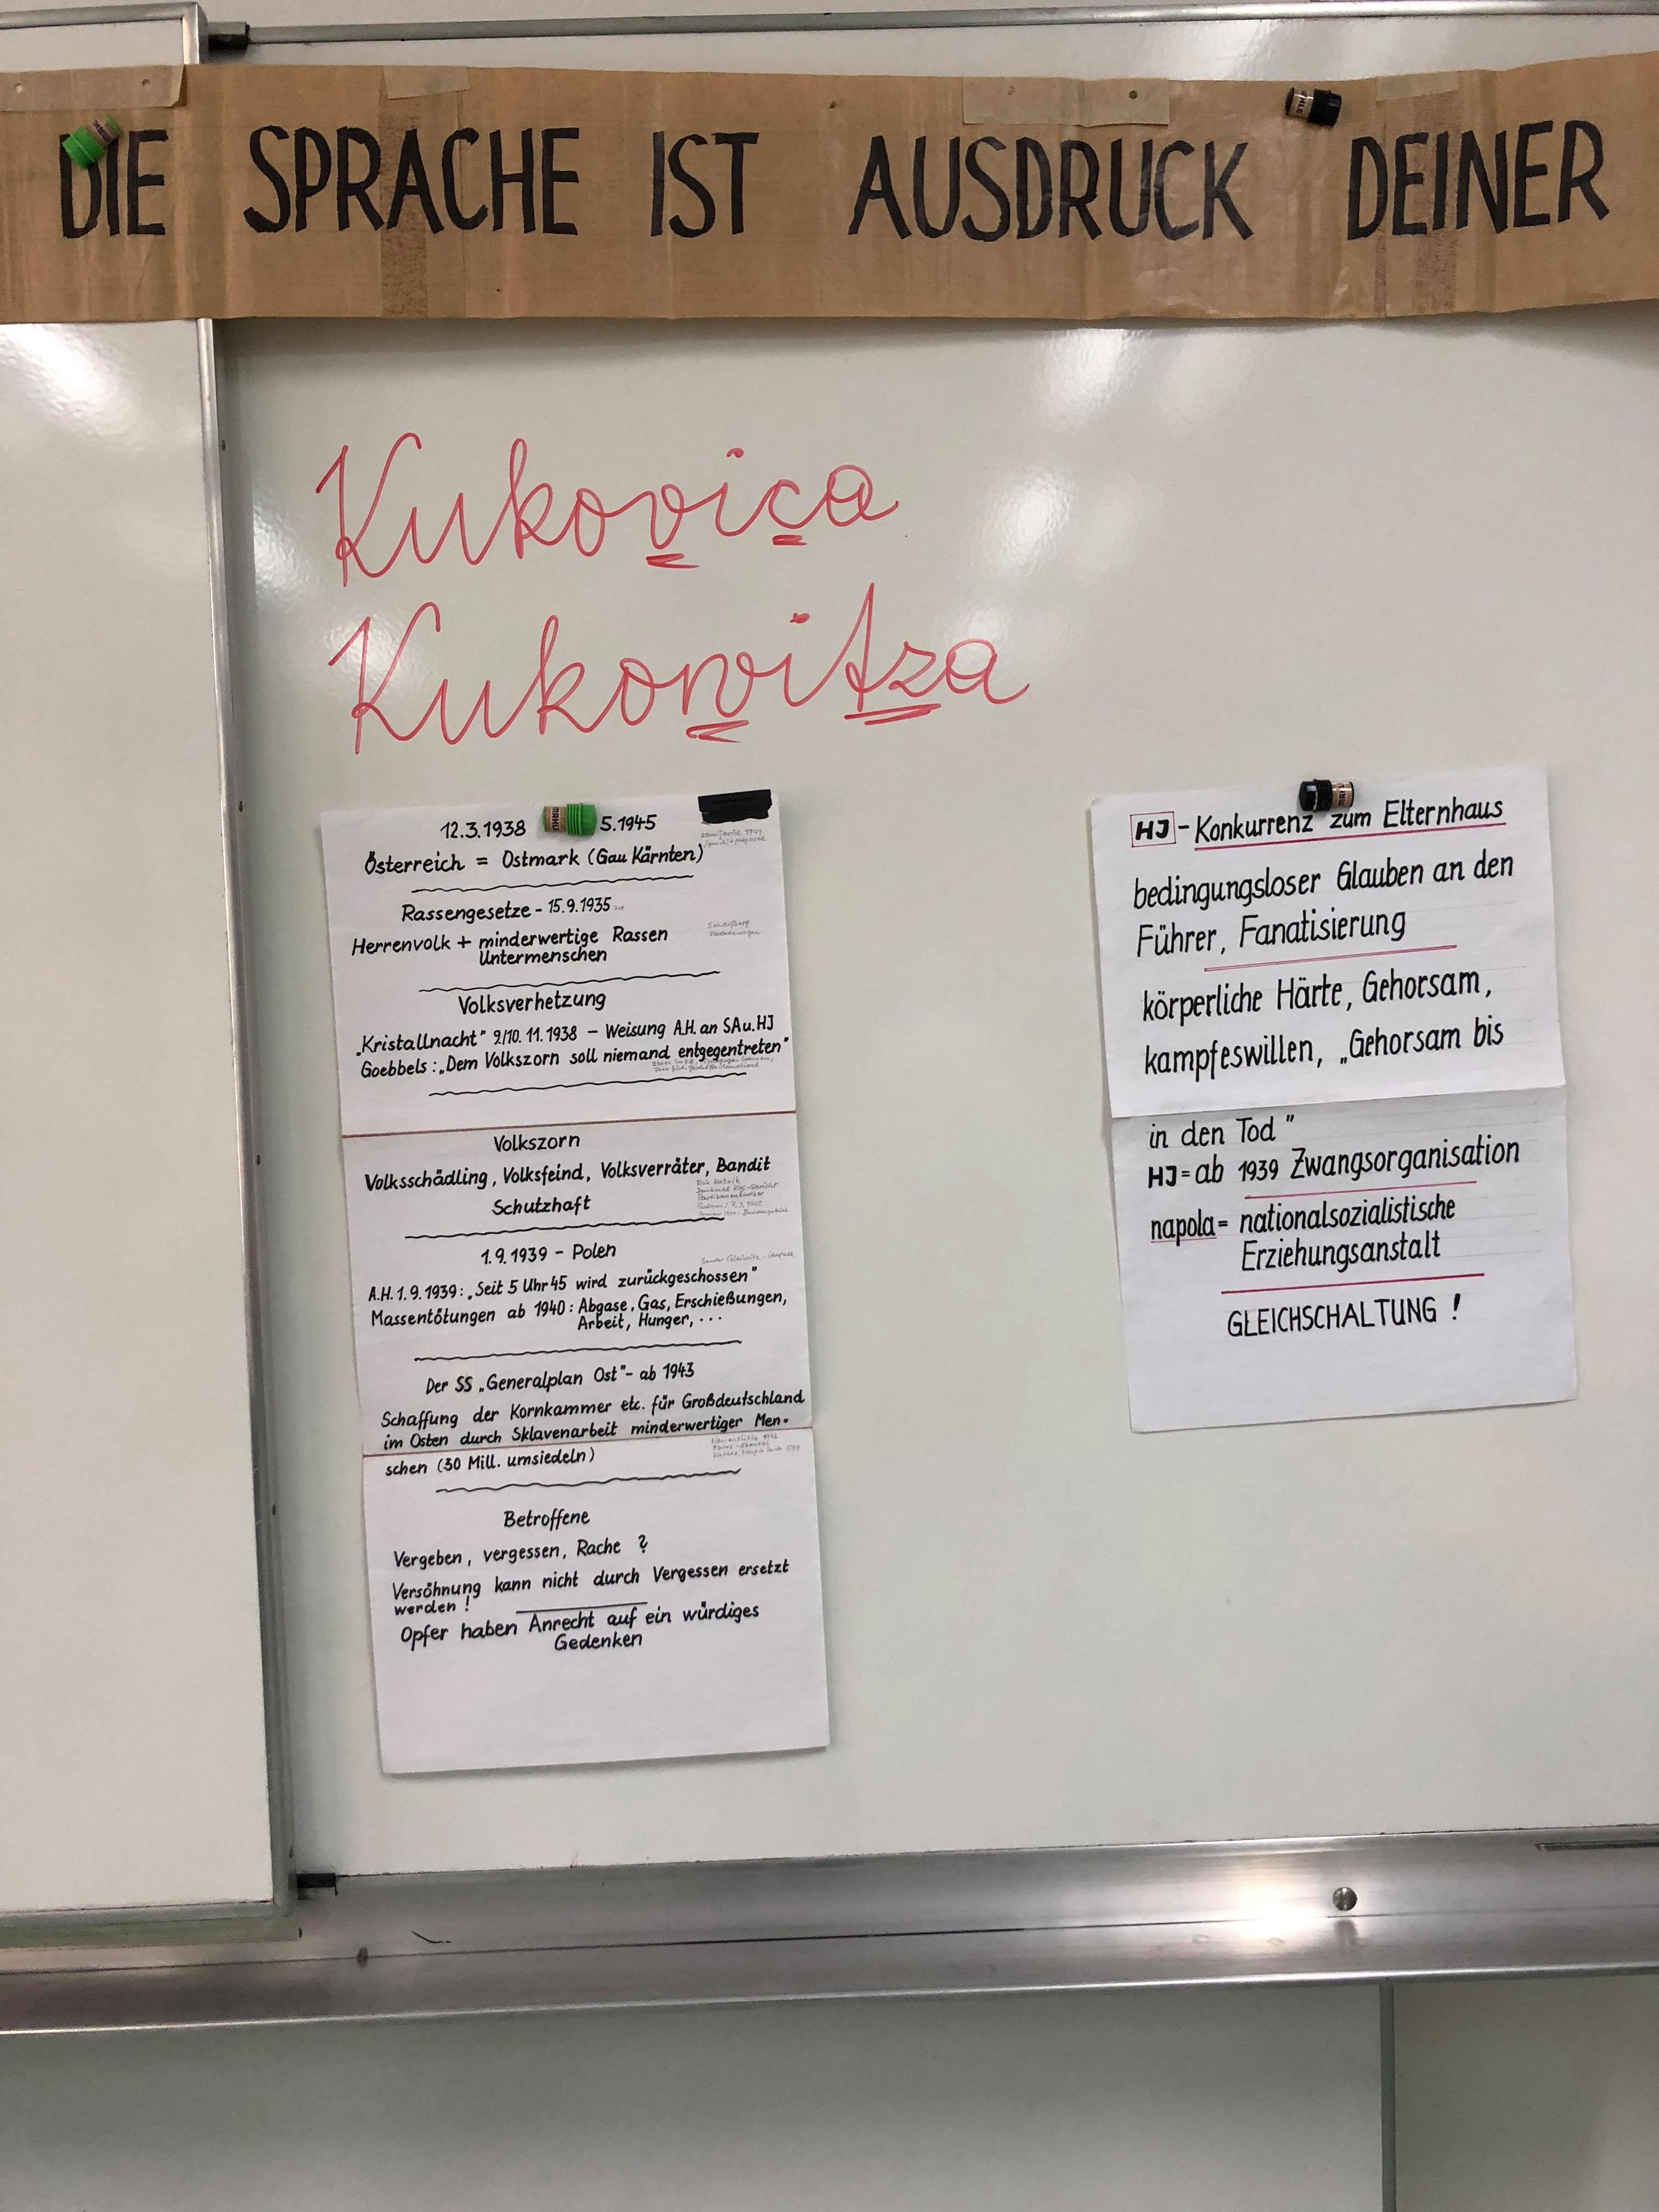 DIE SPRACHE IST AUSDRUCK DEINER
Kukovica
Kukowitza
12.3.1938 5.1945
Österreich = Ostmark (Gau Kärnten)
Rassengesetze - 15.9.1935
Herrenvolk + minderwertige Rassen
Untermenschen
Volksverhetzung
„Kristallnacht" 9/10. 11. 1938 - Weisung A.H. an SA u. HJ
Goebbels: „Dem Volkszorn soll niemand entgegentreten"
Volkszorn
Volksschädling, Volksfeind, Volksverräter, Bandit
Schutzhaft
1.9.1939 - Polen
A.H. 1.9.1939: „Seit 5 Uhr 45 wird zurückgeschossen"
Massentötungen ab 1940: Abgase, Gas, Erschießungen,
Arbeit, Hunger, ...
Der SS „Generalplan Ost" - ab 1943
Schaffung der Kornkammer etc. für Großdeutschland
im Osten durch Sklavenarbeit minderwertiger Men-
schen (30 Mill. umsiedeln)
Betroffene
Vergeben, vergessen, Rache ?
Versöhnung kann nicht durch Vergessen ersetzt
werden !
Opfer haben Anrecht auf ein würdiges
Gedenken
HJ - Konkurrenz zum Elternhaus
bedingungsloser Glauben an den
Führer, Fanatisierung
körperliche Härte, Gehorsam,
kampfeswillen, „Gehorsam bis
in den Tod"
HJ = ab 1939 Zwangsorganisation
napola = nationalsozialistische
Erziehungsanstalt
GLEICHSCHALTUNG !